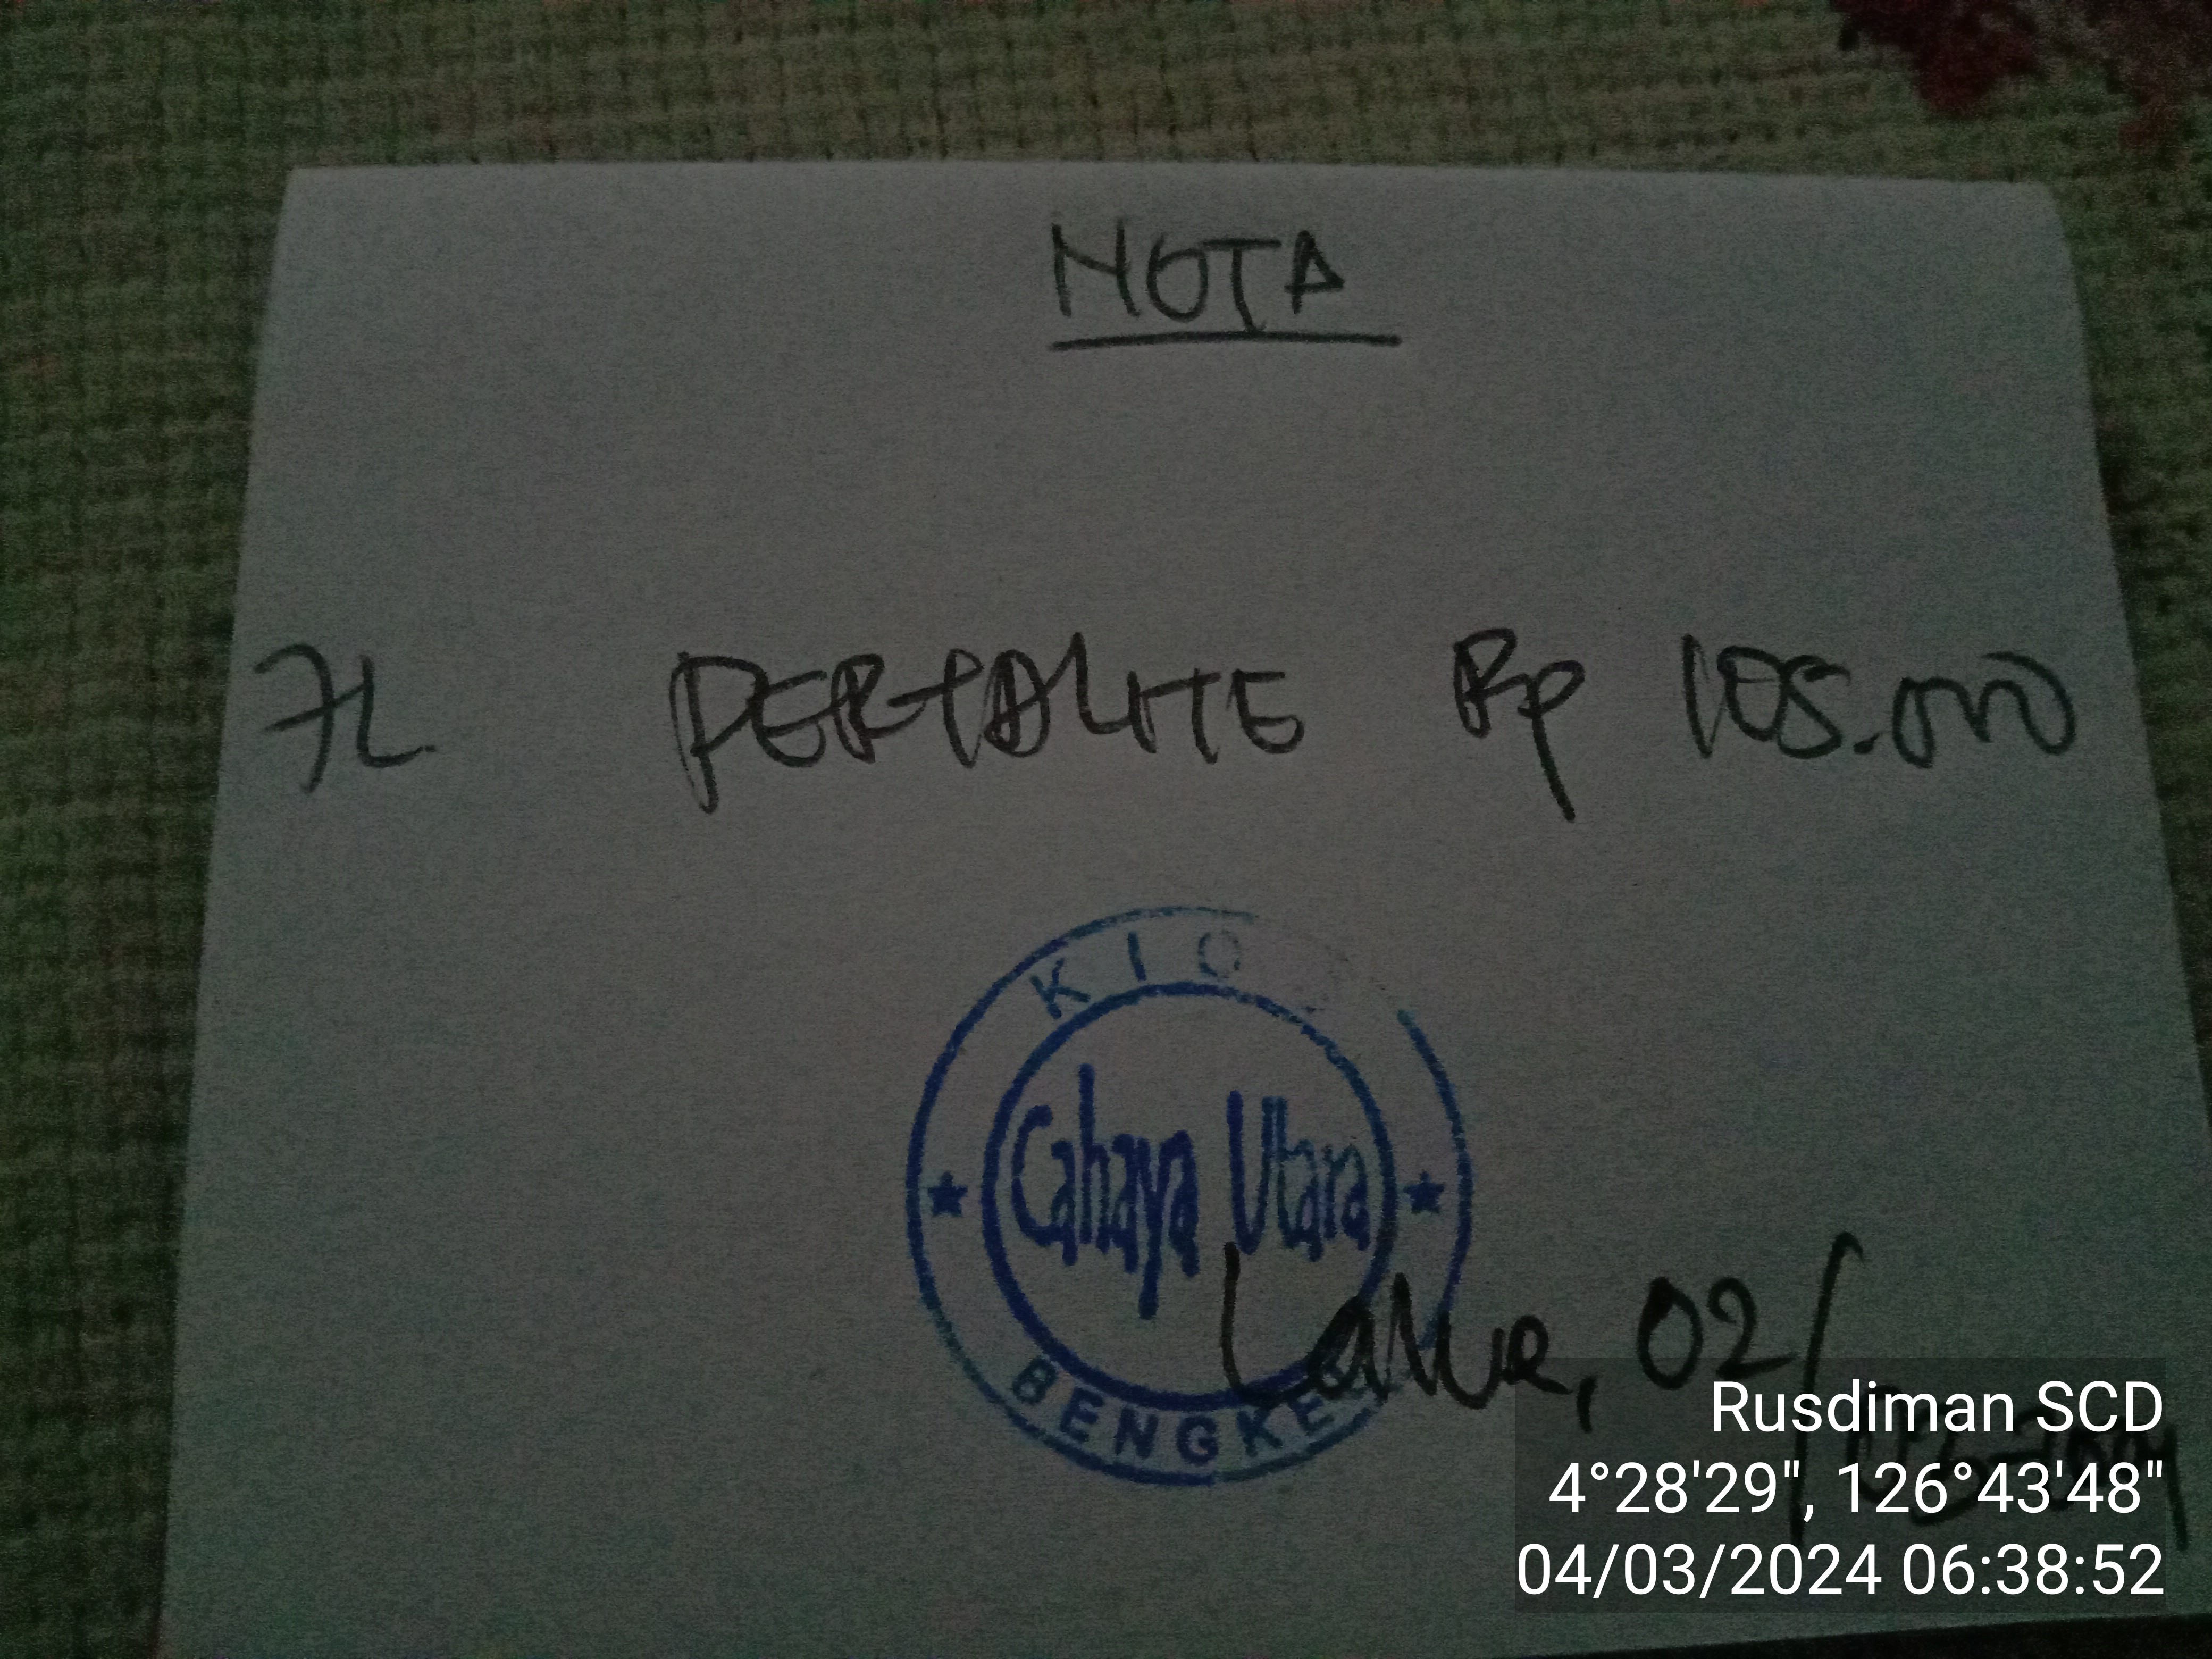 NOTA
7L PERTALITE Rp 105.000
KIOS
Cahaya Utara
BENGKEL
02/
Rusdiman SCD
4°28'29", 126°43'48"
04/03/2024 06:38:52